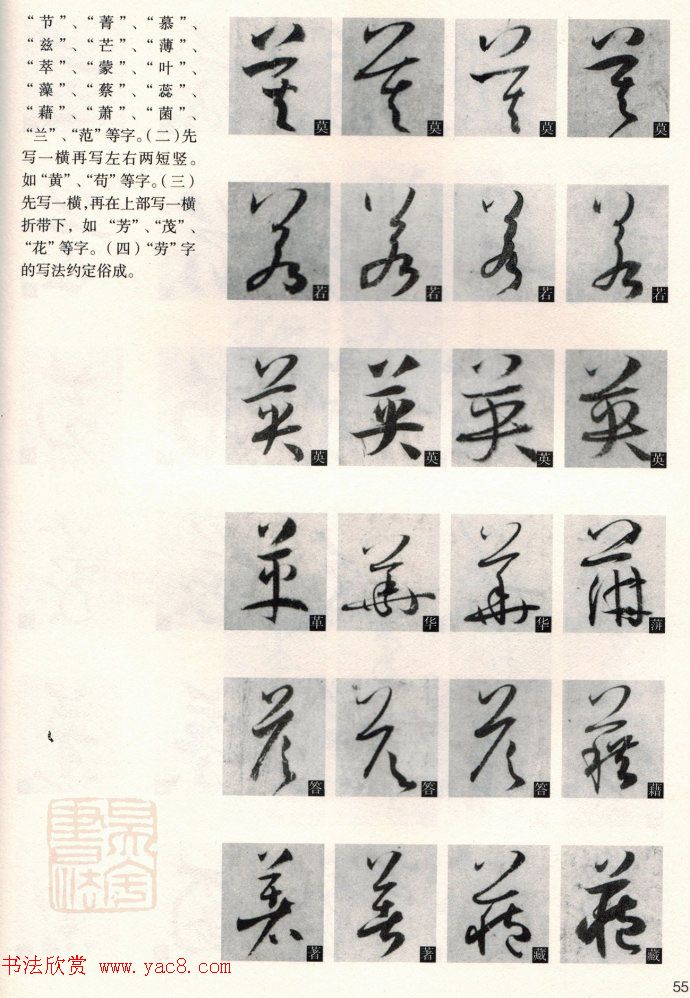 “节”、“菁”、“慕”、
“兹”、“芒”、“薄”、
“萃”、“蒙”、“叶”、
“藻”、“蔡”、“蕊”、
“藉”、“萧”、“菌”、
“兰”、“范”等字。(二)先
写一横再写左右两短竖。
如“黄”、“苟”等字。(三)
先写一横,再在上部写一横
折带下，如 “芳”、“茂”、
“花”等字。(四)“劳”字
的写法约定俗成。
莫 莫 莫 莫
若 若 若 若
英 英 英 英
革 华 华 蓱
答 答 答 藉
著 著 藏 藏
书法欣赏 www.yac8.com
55